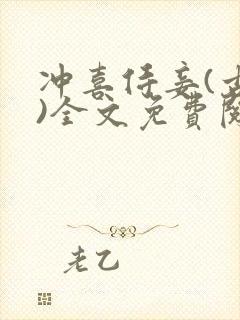 冲喜侍妾(
)全文免費閱
老乙